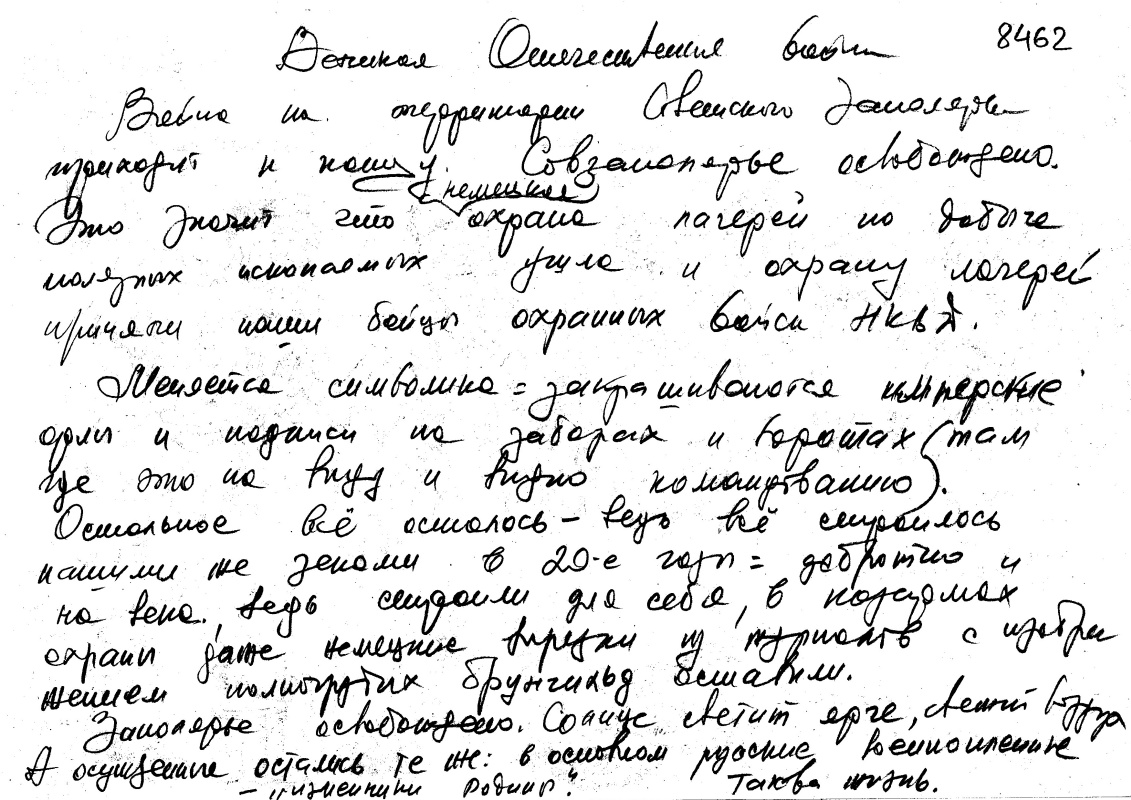 Великая Отечественная война 8462
Война на территории Советского Заполярья
приходит к концу. Совзаполярье освобождено.
немецкая
Это значит что охрана лагерей по добыче
полезных ископаемых ушла и охрану лагерей
приняли наши бойцы охранных войск НКВД.
Меняется символика = закрашиваются имперские
орлы и надписи на заборах и воротах (там
где это на виду и видно командованию).
Остальное всё осталось – ведь всё строилось
нашими же зеками в 20-е годы = добротно и
на века. Ведь строили для себя, в казармах
охраны даже немецкие вырезки из журналов с изобра
жением полногрудых Брунгильд оставили.
Заполярье освобождено. Солнце светит ярче, свежий воздух
А осужденные остались те же: в основном русские военнопленные
– "изменники Родины". Такова жизнь.